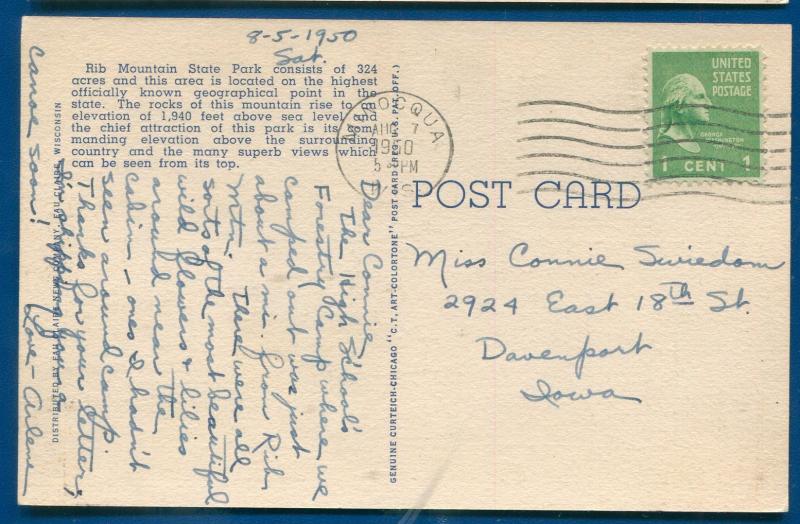 8-5-1950
Sat.
Rib Mountain State Park consists of 324
acres and this area is located on the highest
officially known geographical point in the
state. The rocks of this mountain rise to an
elevation of 1,940 feet above sea level and
the chief attraction of this park is its com-
manding elevation above the surrounding
country and the many superb views which
can be seen from its top.
Dear Connie,
The High School's
Forestry Camp where we
camped out was just
about a mi. from Rib
Mtn. There were all
sorts of the most beautiful
wild flowers & lilies
around near the
cabin - ones I hadn't
seen around camp.
Thanks for your letter;
Love - Arlene
canoe soon!
DISTRIBUTED BY EAU CLAIRE NEWS COMPANY, EAU CLAIRE, WISCONSIN
GENUINE CURTEICH-CHICAGO "C.T. ART-COLORTONE" POST CARD (REG. U.S. PAT. OFF.)
AUG 7
1950
PM
UNITED
STATES
POSTAGE
GEORGE
WASHINGTON
1 CENT 1
POST CARD
Miss Connie Swiedom
2924 East 18th St.
Davenport
Iowa